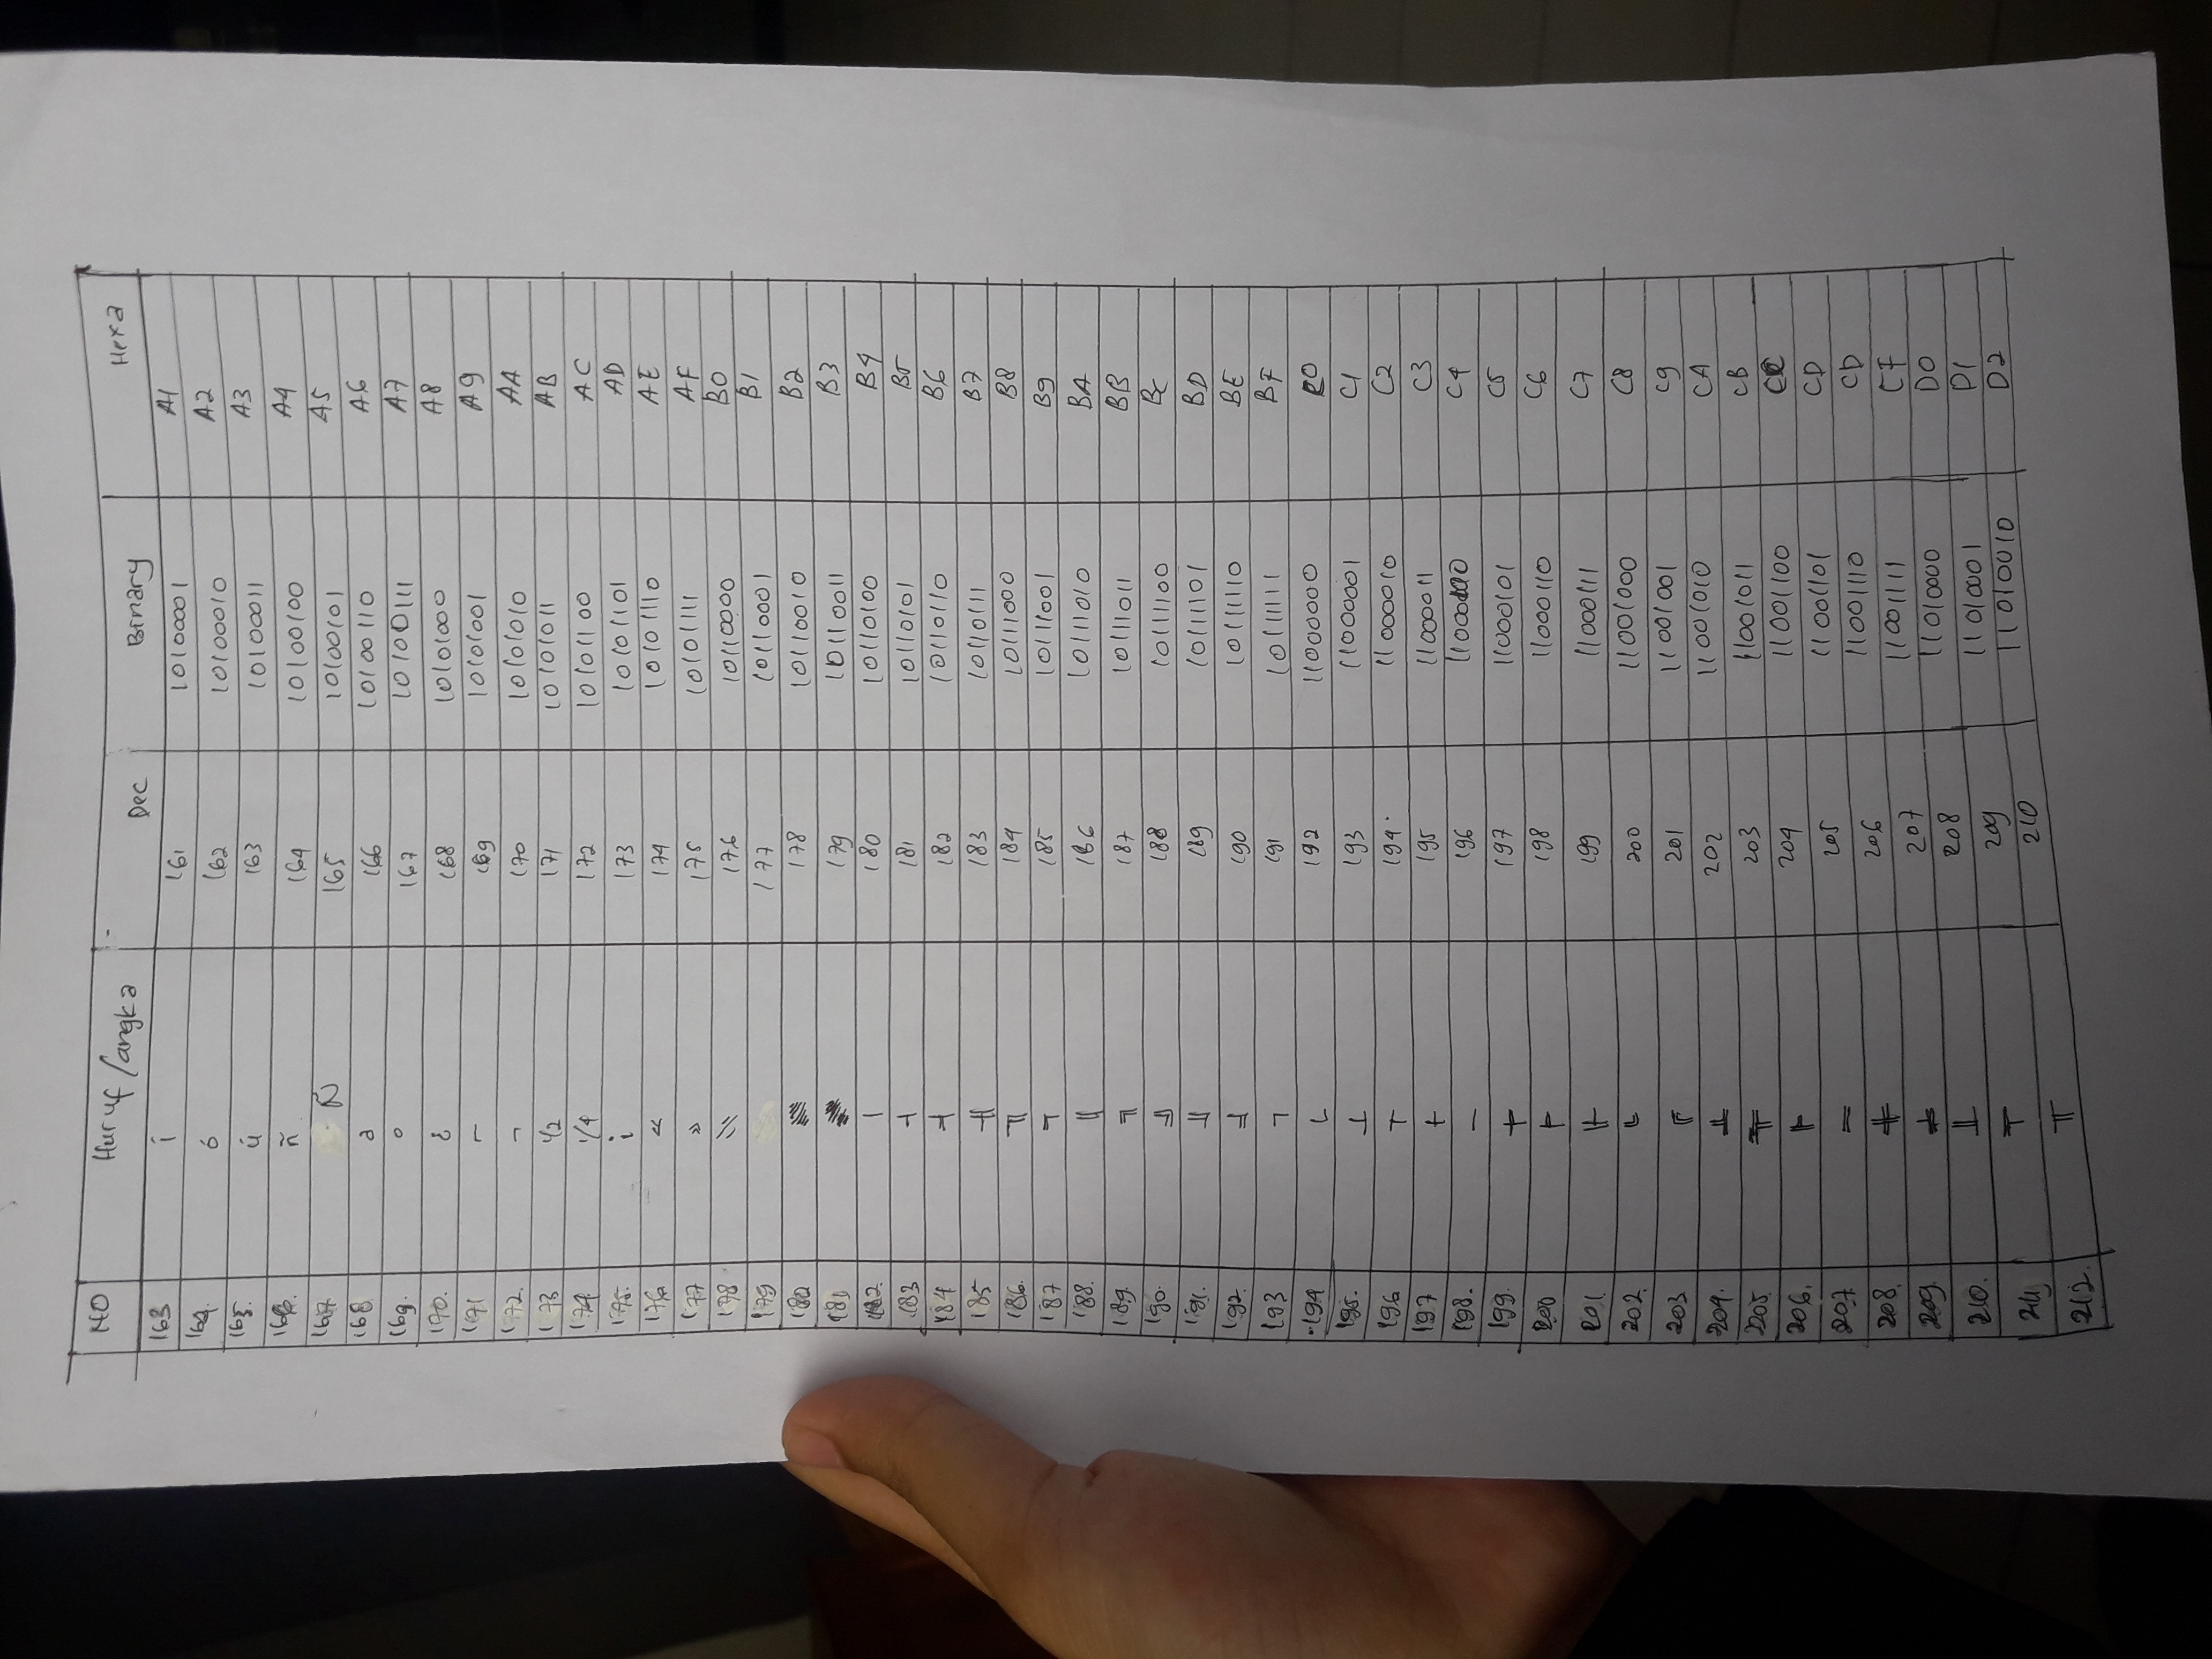 NO Huruf/angka Dec Binary Hexa
163 í 161 10100001 A1
164. ó 162 10100010 A2
165. ú 163 10100011 A3
166. ñ 164 10100100 A4
167 Ñ 165 10100101 A5
168 a 166 10100110 A6
169. o 167 10100111 A7
170. ¿ 168 10101000 A8
171 ⌐ 169 10101001 A9
172. ¬ 170 10101010 AA
173 1/2 171 10101011 AB
174. 1/4 172 10101100 AC
175. i 173 10101101 AD
176 « 174 10101110 AE
177 » 175 10101111 AF
178 \\ 176 10110000 B0
179 177 10110001 B1
180 ▒ 178 10110010 B2
181 ▓ 179 10110011 B3
182. │ 180 10110100 B4
183 ┤ 181 10110101 B5
184 ╡ 182 10110110 B6
185 ╢ 183 10110111 B7
186. ╖ 184 10111000 B8
187 ╕ 185 10111001 B9
188. ║ 186 10111010 BA
189. ╗ 187 10111011 BB
190. ╝ 188 10111100 BC
191. ╜ 189 10111101 BD
192. ╛ 190 10111110 BE
193 ┐ 191 10111111 BF
194 └ 192 11000000 C0
195. ┴ 193 11000001 C1
196 ┬ 194 11000010 C2
197 + 195 11000011 C3
198. ─ 196 11000100 C4
199. ┼ 197 11000101 C5
200 ╞ 198 11000110 C6
201. ╟ 199 11000111 C7
202. ╚ 200 11001000 C8
203 ╔ 201 11001001 C9
204. ╩ 202 11001010 CA
205. ╦ 203 11001011 CB
206. ╠ 204 11001100 CC
207 ═ 205 11001101 CD
208. ╬ 206 11001110 CD
209. ╧ 207 11001111 CF
210. ╨ 208 11010000 D0
211 ╤ 209 11010001 D1
212. ╥ 210 11010010 D2